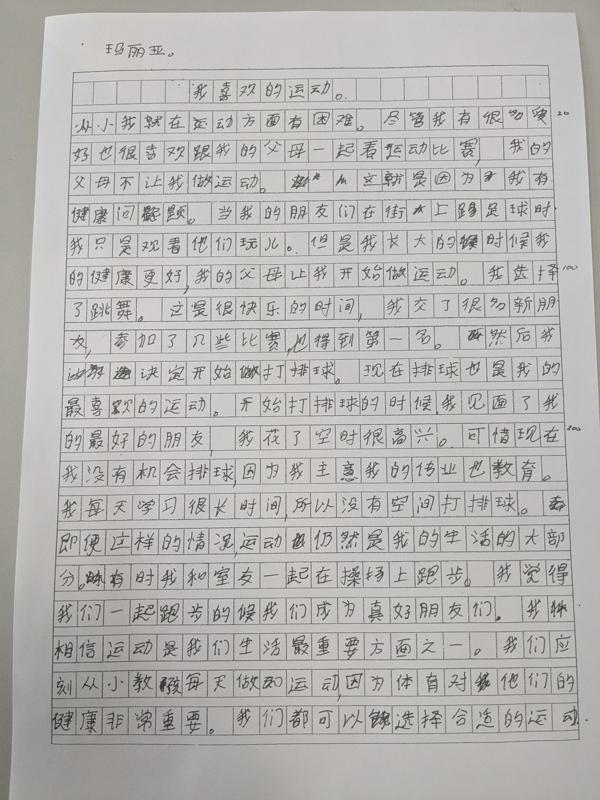 玛丽亚。
我喜欢的运动。
从小我就在运动方面有困难。尽管我有很多爱 20
好也很喜欢跟我的父母一起看运动比赛,我的
父母不让我做运动。这就是因为我有
健康问题。当我的朋友们在街上踢足球时
我只是观看他们玩儿。但是我长大的时候我
的健康更好,我的父母让我开始做运动。我选择 100
了跳舞。这是很快乐的时间,我交了很多新朋
友,参加了几些比赛,也得到第一名。然后我
决定开始打排球。现在排球也是我的
最喜欢的运动。开始打排球的时候我见面了我
的最好的朋友,我花了空时很高兴。可惜现在 200
我没有机会排球,因为我主意我的专业也教育。
我每天学习很长时间,所以没有空间打排球。
即便这样的情况,运动仍然是我的生活的大部
分。有时我和室友一起在操场上跑步。我觉得
我们一起跑步的候我们成为真好朋友们。我
相信运动是我们生活最重要方面之一。我们应
刻从小教孩每天做运动,因为体育对他们的
健康非常重要。我们都可以选择合适的运动.